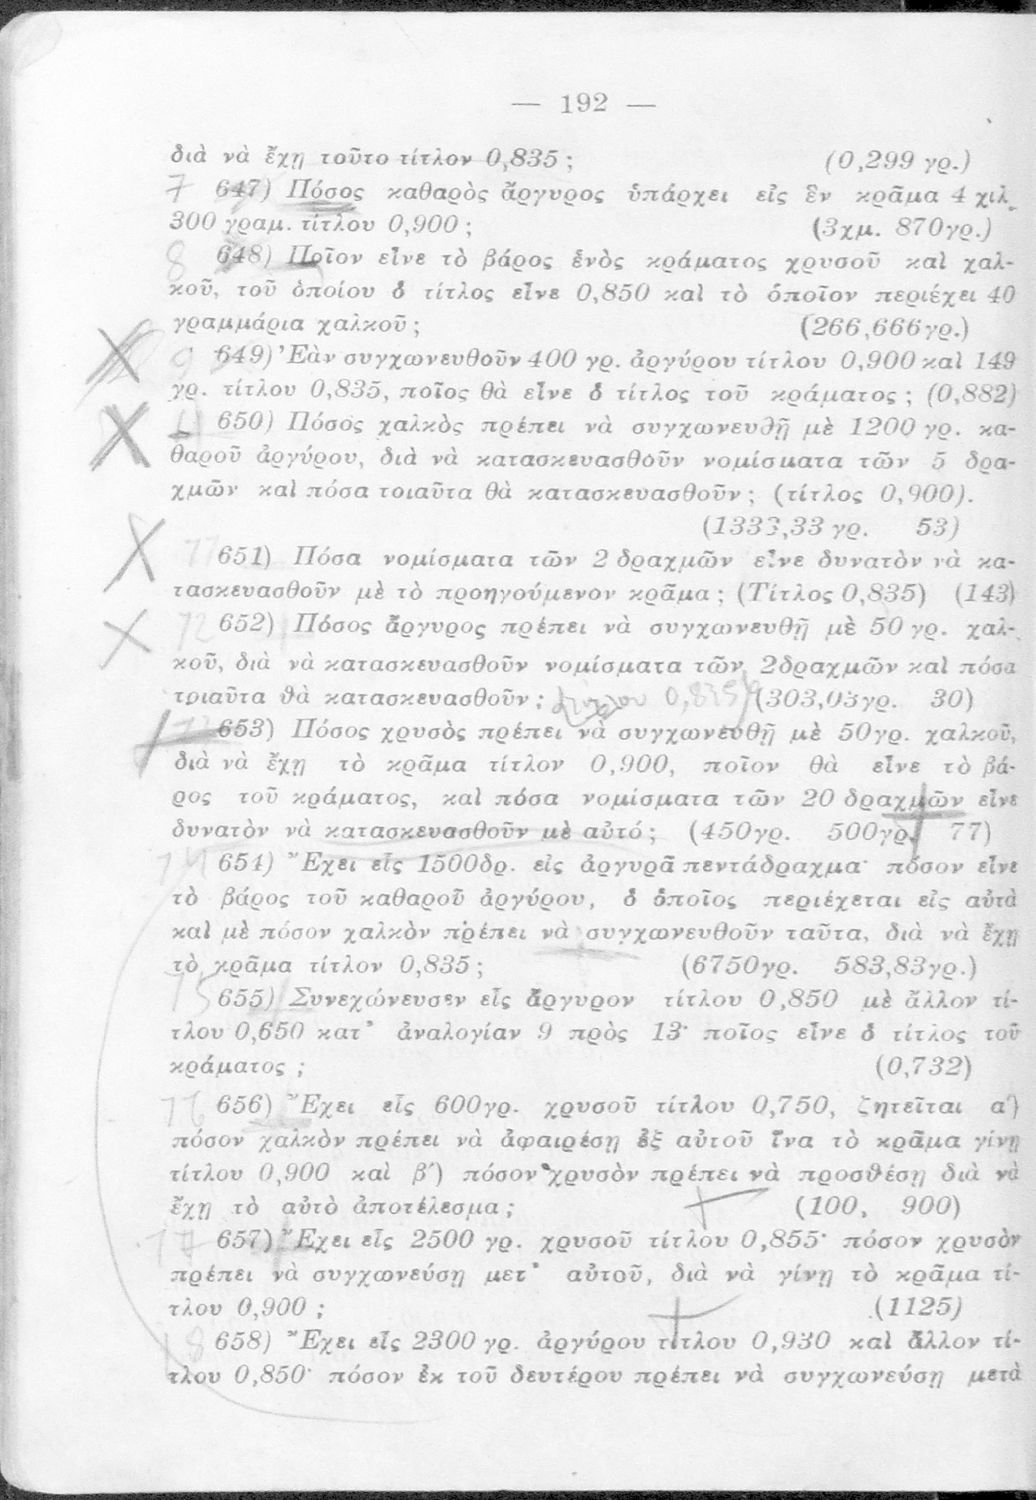 — 192 —
διὰ νὰ ἔχῃ τοῦτο τίτλον 0,835 ; (0,299 γρ.)
7 647) Πόσος καθαρὸς ἄργυρος ὑπάρχει εἰς ἓν κρᾶμα 4 χιλ.
300 γραμ. τίτλου 0,900 ; (3χμ. 870γρ.)
8 648) Ποῖον εἶνε τὸ βάρος ἑνὸς κράματος χρυσοῦ καὶ χαλ-
κοῦ, τοῦ ὁποίου ὁ τίτλος εἶνε 0,850 καὶ τὸ ὁποῖον περιέχει 40
γραμμάρια χαλκοῦ ; (266,666γρ.)
9 649) Ἐὰν συγχωνευθοῦν 400 γρ. ἀργύρου τίτλου 0,900 καὶ 149
γρ. τίτλου 0,835, ποῖος θὰ εἶνε ὁ τίτλος τοῦ κράματος ; (0,882)
650) Πόσος χαλκὸς πρέπει νὰ συγχωνευθῇ μὲ 1200 γρ. κα-
θαροῦ ἀργύρου, διὰ νὰ κατασκευασθοῦν νομίσματα τῶν 5 δρα-
χμῶν καὶ πόσα τοιαῦτα θὰ κατασκευασθοῦν ; (τίτλος 0,900).
(1333,33 γρ. 53)
11 651) Πόσα νομίσματα τῶν 2 δραχμῶν εἶνε δυνατὸν νὰ κα-
τασκευασθοῦν μὲ τὸ προηγούμενον κρᾶμα ; (Τίτλος 0,835) (143)
12 652) Πόσος ἄργυρος πρέπει νὰ συγχωνευθῇ μὲ 50 γρ. χαλ-
κοῦ, διὰ νὰ κατασκευασθοῦν νομίσματα τῶν 2δραχμῶν καὶ πόσα
τοιαῦτα θὰ κατασκευασθοῦν ; τίτλου 0,835 (303,03γρ. 30)
13 653) Πόσος χρυσὸς πρέπει νὰ συγχωνευθῇ μὲ 50γρ. χαλκοῦ,
διὰ νὰ ἔχῃ τὸ κρᾶμα τίτλον 0,900, ποῖον θὰ εἶνε τὸ βά-
ρος τοῦ κράματος, καὶ πόσα νομίσματα τῶν 20 δραχμῶν εἶνε
δυνατὸν νὰ κατασκευασθοῦν μὲ αὐτό ; (450γρ. 500γρ. 77)
14 654) Ἔχει εἷς 1500δρ. εἰς ἀργυρᾶ πεντάδραχμα· πόσον εἶνε
τὸ βάρος τοῦ καθαροῦ ἀργύρου, ὁ ὁποῖος περιέχεται εἰς αὐτὰ
καὶ μὲ πόσον χαλκὸν πρέπει νὰ συγχωνευθοῦν ταῦτα, διὰ νὰ ἔχῃ
τὸ κρᾶμα τίτλον 0,835 ; (6750γρ. 583,83γρ.)
15 655) Συνεχώνευσεν εἷς ἄργυρον τίτλου 0,850 μὲ ἄλλον τί-
τλου 0,650 κατ᾿ ἀναλογίαν 9 πρὸς 13· ποῖος εἶνε ὁ τίτλος τοῦ
κράματος ; (0,732)
16 656) Ἔχει εἷς 600γρ. χρυσοῦ τίτλου 0,750, ζητεῖται α΄)
πόσον χαλκὸν πρέπει νὰ ἀφαιρέσῃ ἐξ αὐτοῦ ἵνα τὸ κρᾶμα γίνῃ
τίτλου 0,900 καὶ β΄) πόσον χρυσὸν πρέπει νὰ προσθέσῃ διὰ νὰ
ἔχῃ τὸ αὐτὸ ἀποτέλεσμα ; (100, 900)
17 657) Ἔχει εἷς 2500 γρ. χρυσοῦ τίτλου 0,855· πόσον χρυσὸν
πρέπει νὰ συγχωνεύσῃ μετ᾿ αὐτοῦ, διὰ νὰ γίνῃ τὸ κρᾶμα τί-
τλου 0,900 ; (1125)
18 658) Ἔχει εἷς 2300 γρ. ἀργύρου τίτλου 0,930 καὶ ἄλλον τί-
τλου 0,850· πόσον ἐκ τοῦ δευτέρου πρέπει νὰ συγχωνεύσῃ μετὰ